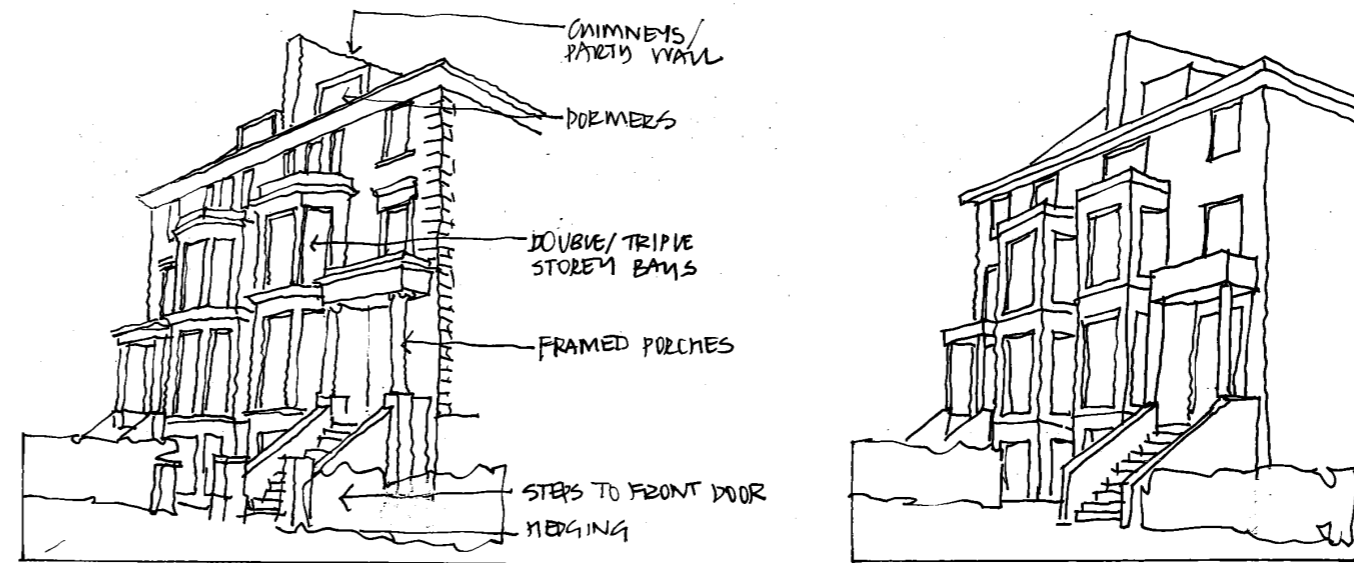 CHIMNEYS/
PARTY WALL
DORMERS
DOUBLE/TRIPLE
STOREY BAYS
FRAMED PORCHES
STEPS TO FRONT DOOR
HEDGING